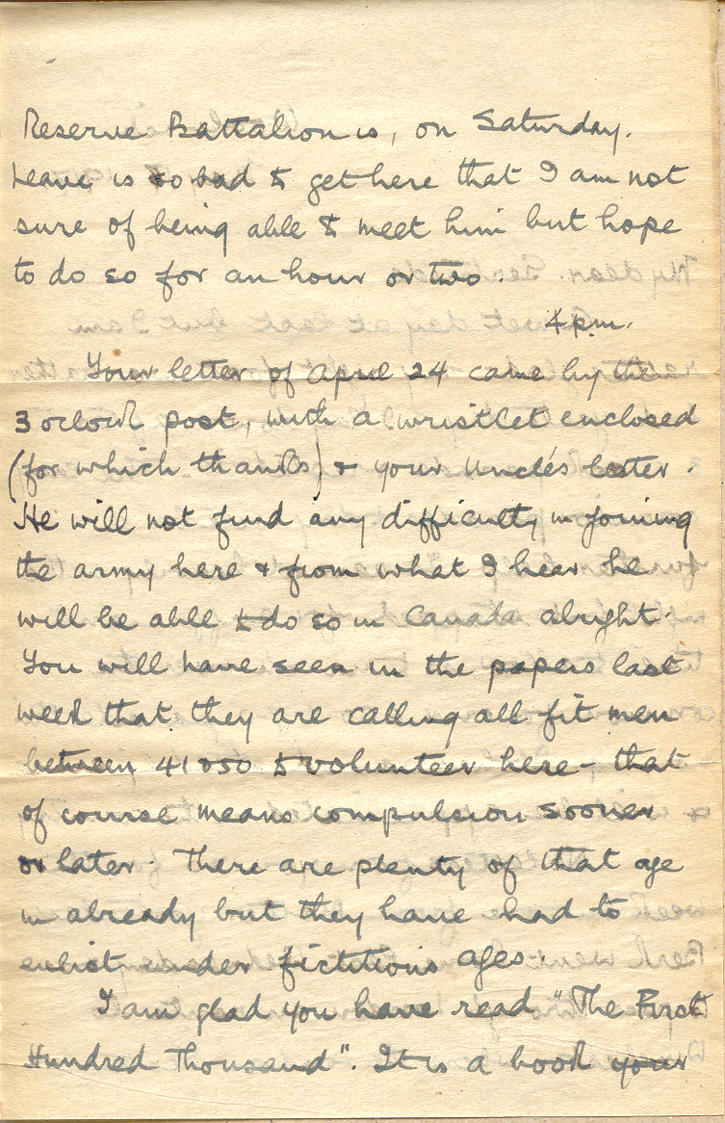 Reserve Battalion is, on Saturday.
Leave is so bad to get here that I am not
sure of being able to meet him but hope
to do so for an hour or two.
4 pm.
Your letter of April 24 came by the
3 oclock post, with a wristlet enclosed
(for which thanks) & your Uncle's letter.
He will not find any difficulty in joining
the army here & from what I hear he
will be able to do so in Canada alright.
You will have seen in the papers last
week that they are calling all fit men
between 41 & 50 to volunteer here - that
of course means compulsion sooner
or later. There are plenty of that age
in already but they have had to
enlist under fictitious ages.
I am glad you have read "The First
Hundred Thousand". It is a book your